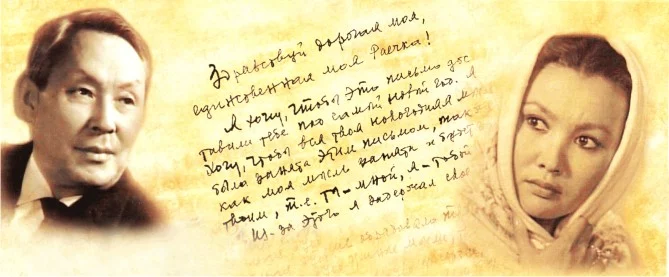 Здравствуй дорогая моя,
единственная моя Раечка!
Я хочу, чтобы это письмо дос
тавили тебе под самый новый год. Я
хочу, чтобы вся твоя новогодняя
была занята этим письмом, так
как моя мысль занята и будет
твоим, т.е. Ты – мной, я – тобой
Из-за этого я задержал